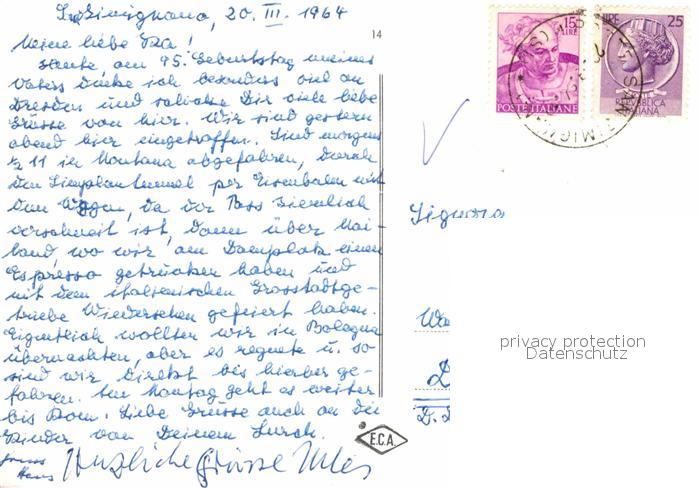 S. Gimignano, 20. III. 1964
Meine liebe Isa!
Heute am 95. Geburtstag meines
Vaters denke ich besonders viel an
Dresden und schicke Dir viele liebe
Grüsse von hier. Wir sind gestern
abend hier eingetroffen. Sind morgens
½ 11 in Montana abgefahren, durch
den Simplontunnel per Eisenbahn mit
dem Wagen, da der Pass ziemlich
verschneit ist, dann über Mai-
land, wo wir am Domplatz einen
Espresso getrunken haben und
mit dem italienischen Grosstadtge-
triebe Wiedersehen gefeiert haben.
Eigentlich wollten wir in Bologna
übernachten, aber es regnete u. so
sind wir direkt bis hierher ge-
fahren. Am Montag geht es weiter
bis Rom. Liebe Grüsse auch an die
Kinder von Deinem
Hans
Herzliche Grüsse
14
15
LIRE
POSTE ITALIANE
LIRE 25
REPVBBLICA
ITALIANA
Signora
privacy protection
Datenschutz
E.C.A.